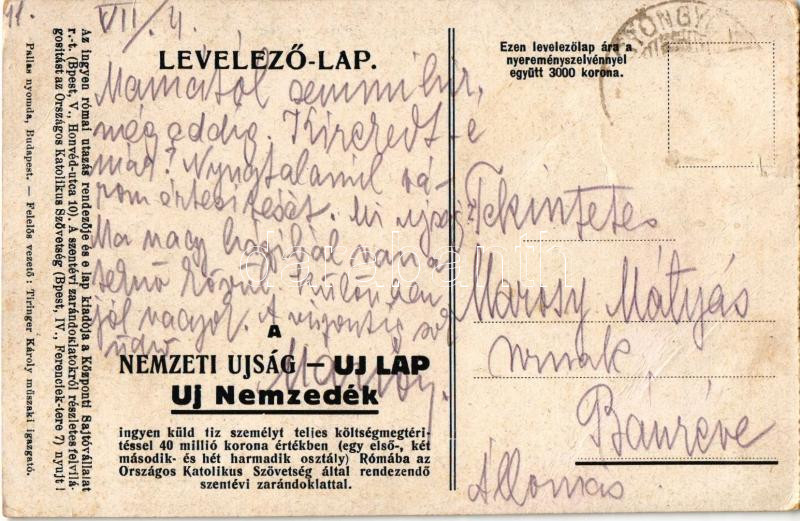 11.
VII/4.
LEVELEZŐ-LAP.
Ezen levelezőlap ára a
nyereményszelvénnyel
együtt 3000 korona.
GYÖNGY
Mamától semmi hír,
még eddig.
már? Nyugtalanul vá-
rom értesítését. Mi újság?
Ma nagy házibál van a
körül. Különben
jól vagyok. A viszontlá
A
NEMZETI UJSÁG — UJ LAP
Uj Nemzedék
ingyen küld tiz személyt teljes költségmegtéri-
téssel 40 millió korona értékben (egy első-, két
második- és hét harmadik osztály) Rómába az
Országos Katolikus Szövetség által rendezendő
szentévi zarándoklattal.
Tekintetes
Marosy Mátyás
urnak
Bánréve
Állomás
Az ingyen római utazás rendezője és e lap kiadója a Központi Sajtóvállalat
r.-t. (Bpest, V., Honvéd-utca 10). A szentévi zarándoklatokról részletes felvilá-
gosítást az Országos Katolikus Szövetség (Bpest, IV., Ferenciek-tere 7) nyujt!
Pallas nyomda, Budapest. — Felelős vezető: Tiringer Károly műszaki igazgató.